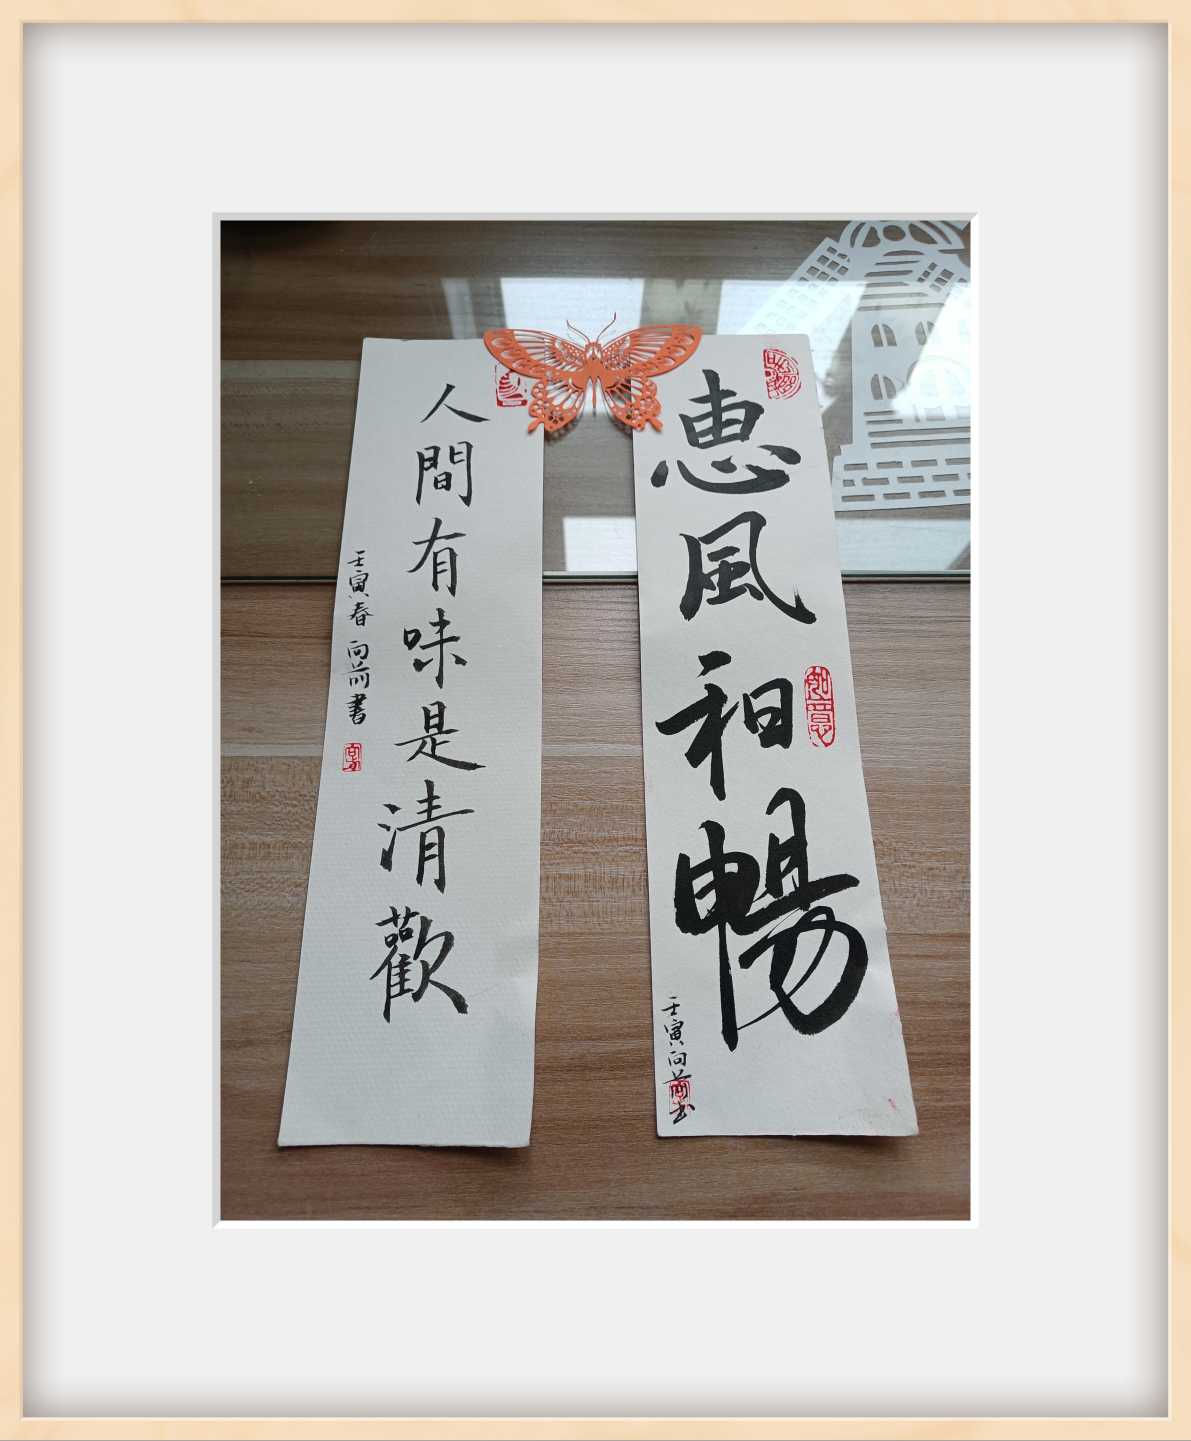 惠風和暢
如意
壬寅向前书
人間有味是清歡
壬寅春向前書